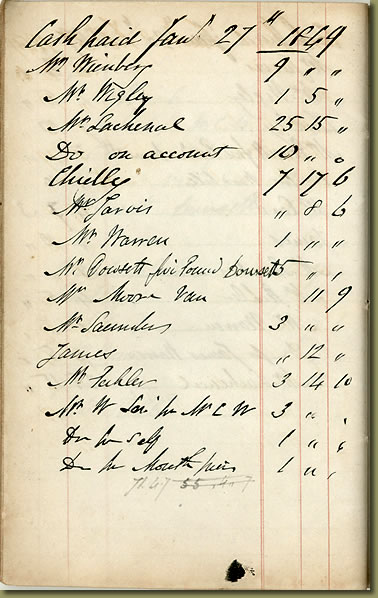 Cash paid Jany 27th 1849
Mr Weinberg 9 " "
Mr Wigley 1 5 "
Mr Lachenal 25 15 "
Do on account 10 " "
Chielly 7 17 6
Mr Jarvis " 8 6
Mr Warren 1 " "
Mr Dowsett five Pound Dowsett 5 " "
Mr Moore Van 11 9
Mr Saunders 3 " "
James " 12 "
Mr 3 14 10
Mr W for Mr C W 3 " "
Do for self 1 " "
Do for Mouth pieces 1 " "